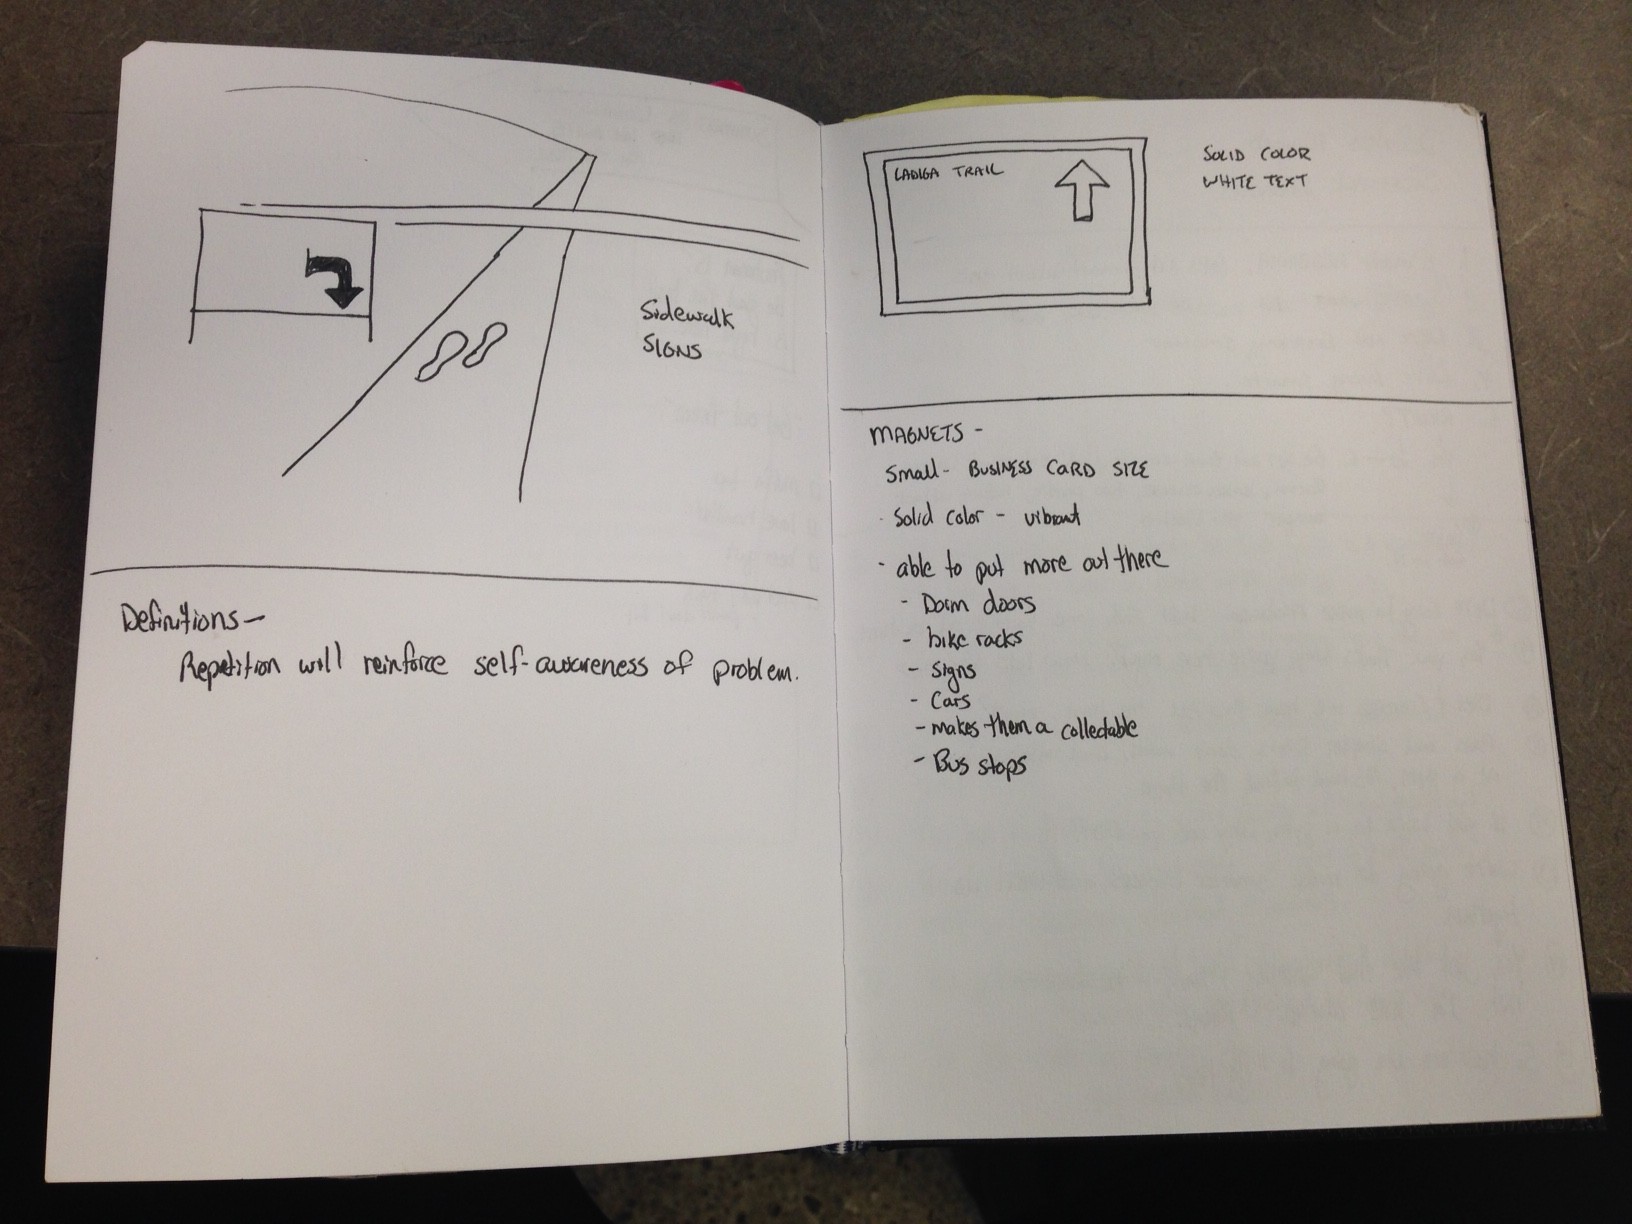 Sidewalk
SIGNS
Definitions-
Repetition will reinforce self-awareness of problem.
LADIGA TRAIL
SOLID COLOR
WHITE TEXT
MAGNETS -
Small - BUSINESS CARD SIZE
· Solid color - vibrant
- able to put more out there
- Dorm doors
- bike racks
- signs
- Cars
- makes them a collectable
- Bus stops